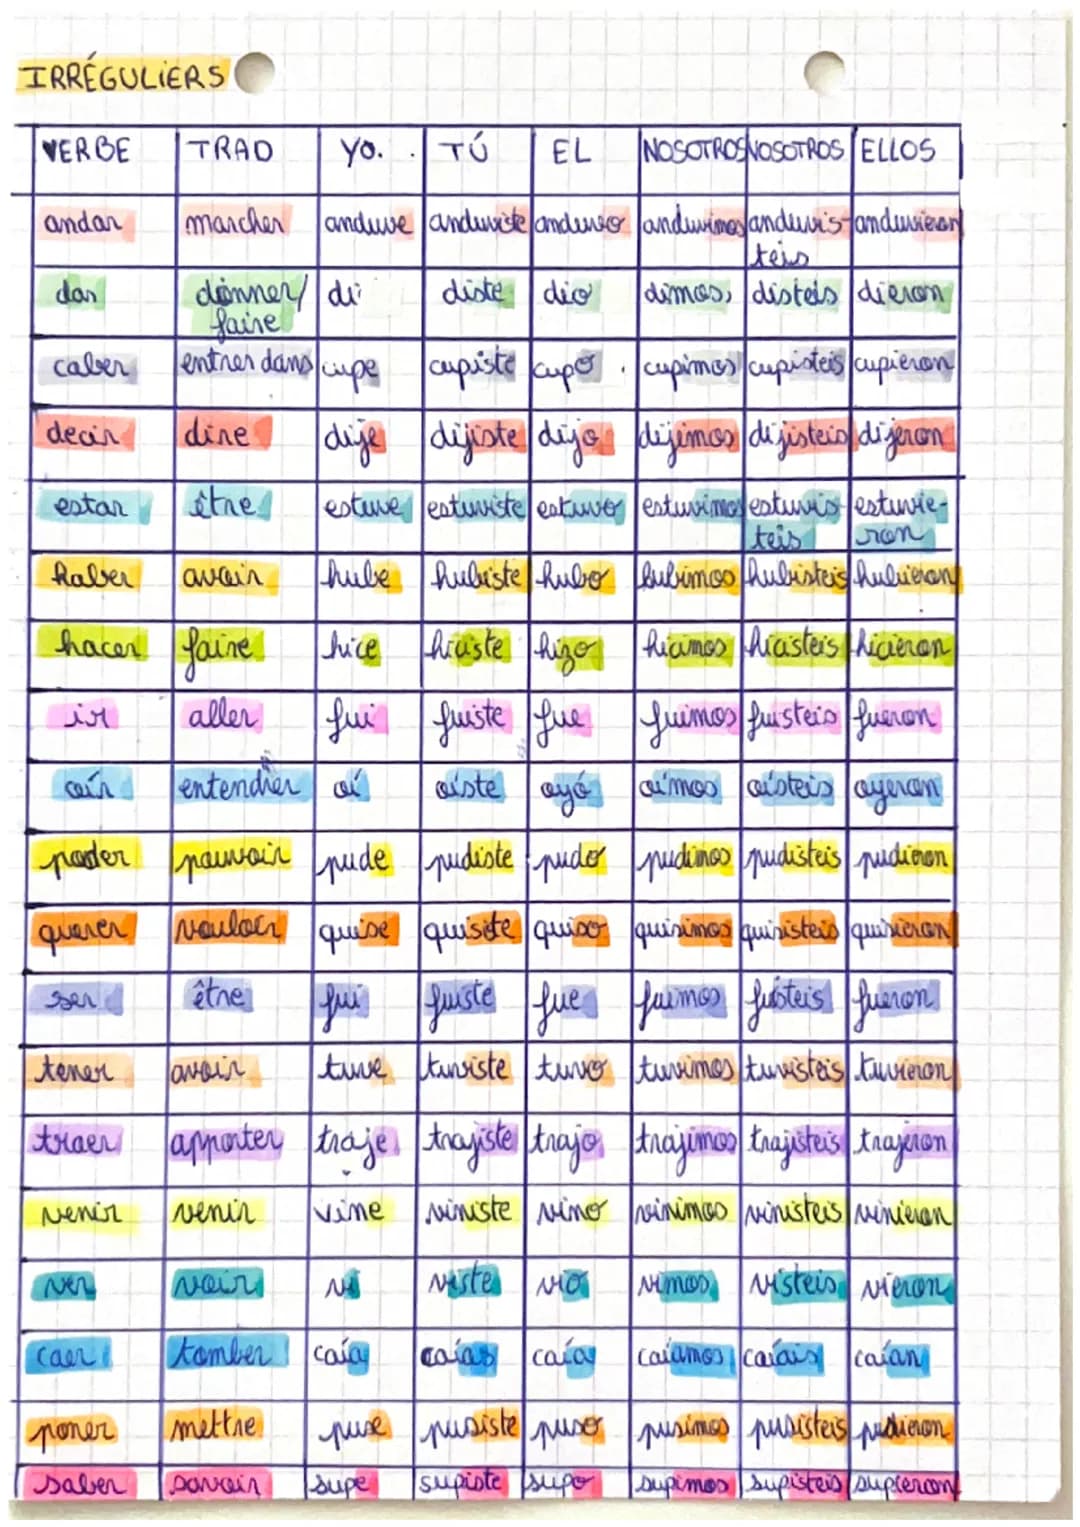 IRRÉGULIERS
VERBE TRAD YO. TÚ EL NOSOTROS VOSOTROS ELLOS
andar marcher anduve anduviste anduvo anduvimos anduvis- anduvieron
teis
dar donner/ di diste dio dimos, disteis dieron
faire
caber entrer dans cupe cupiste cupo cupimos cupisteis cupieron
decir dire dije dijiste dijo dijimos dijisteis dijeron
estar être estuve estuviste estuvo estuvimos estuvis- estuvie-
teis ron
haber avoir hube hubiste hubo hubimos hubisteis hubieron
hacer faire hice hiciste hizo hicimos hicisteis hicieron
ir aller fui fuiste fue fuimos fuisteis fueron
oír entendre oí oíste oyó oímos oísteis oyeron
poder pouvoir pude pudiste pudo pudimos pudisteis pudieron
querer vouloir quise quisiste quiso quisimos quisisteis quisieron
ser être fui fuiste fue fuimos fuisteis fueron
tener avoir tuve tuviste tuvo tuvimos tuvisteis tuvieron
traer apporter traje trajiste trajo trajimos trajisteis trajeron
venir venir vine viniste vino vinimos vinisteis vinieron
ver voir vi viste vio vimos visteis vieron
caer tomber caía caías caía caíamos caíais caían
poner mettre puse pusiste puso pusimos pusisteis pudieron
saber savoir supe supiste supo supimos supisteis supieron